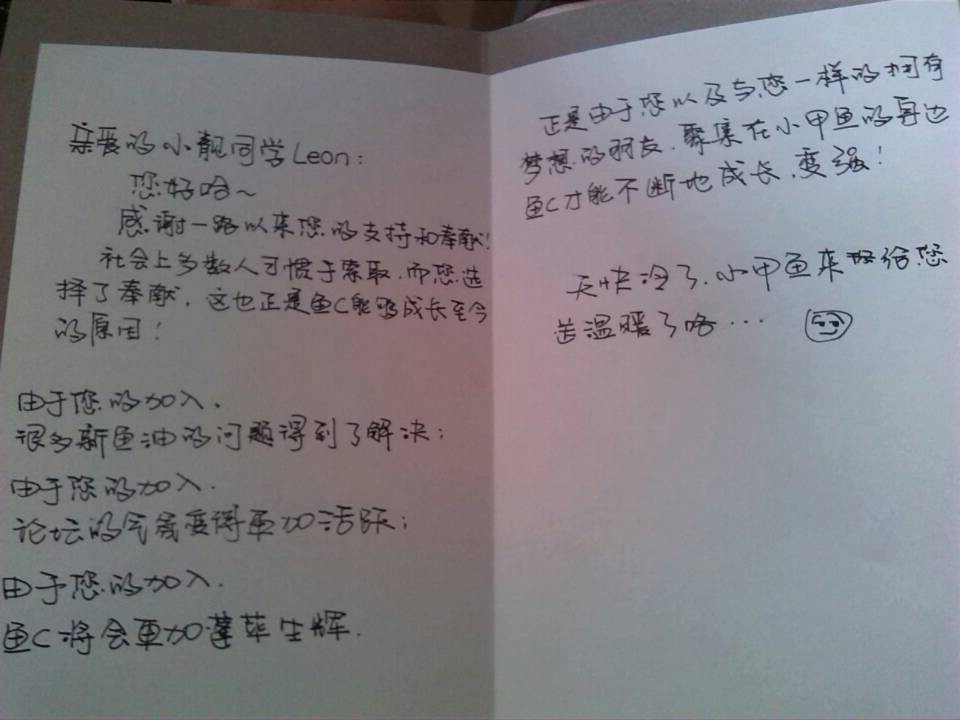 亲爱的小靓同学Leon：
您好哈～
感谢一路以来您的支持和奉献！
社会上多数人习惯于索取，而您选
择了奉献，这也正是鱼C能够成长至今
的原因！
由于您的加入，
很多新鱼油的问题得到了解决；
由于您的加入，
论坛的气氛变得更加活跃；
由于您的加入，
鱼C将会更加蓬荜生辉．
正是由于您以及与您一样的拥有
梦想的朋友，聚集在小甲鱼的身边
鱼C才能不断地成长，变强！
天快冷了，小甲鱼来给您
送温暖了咯…